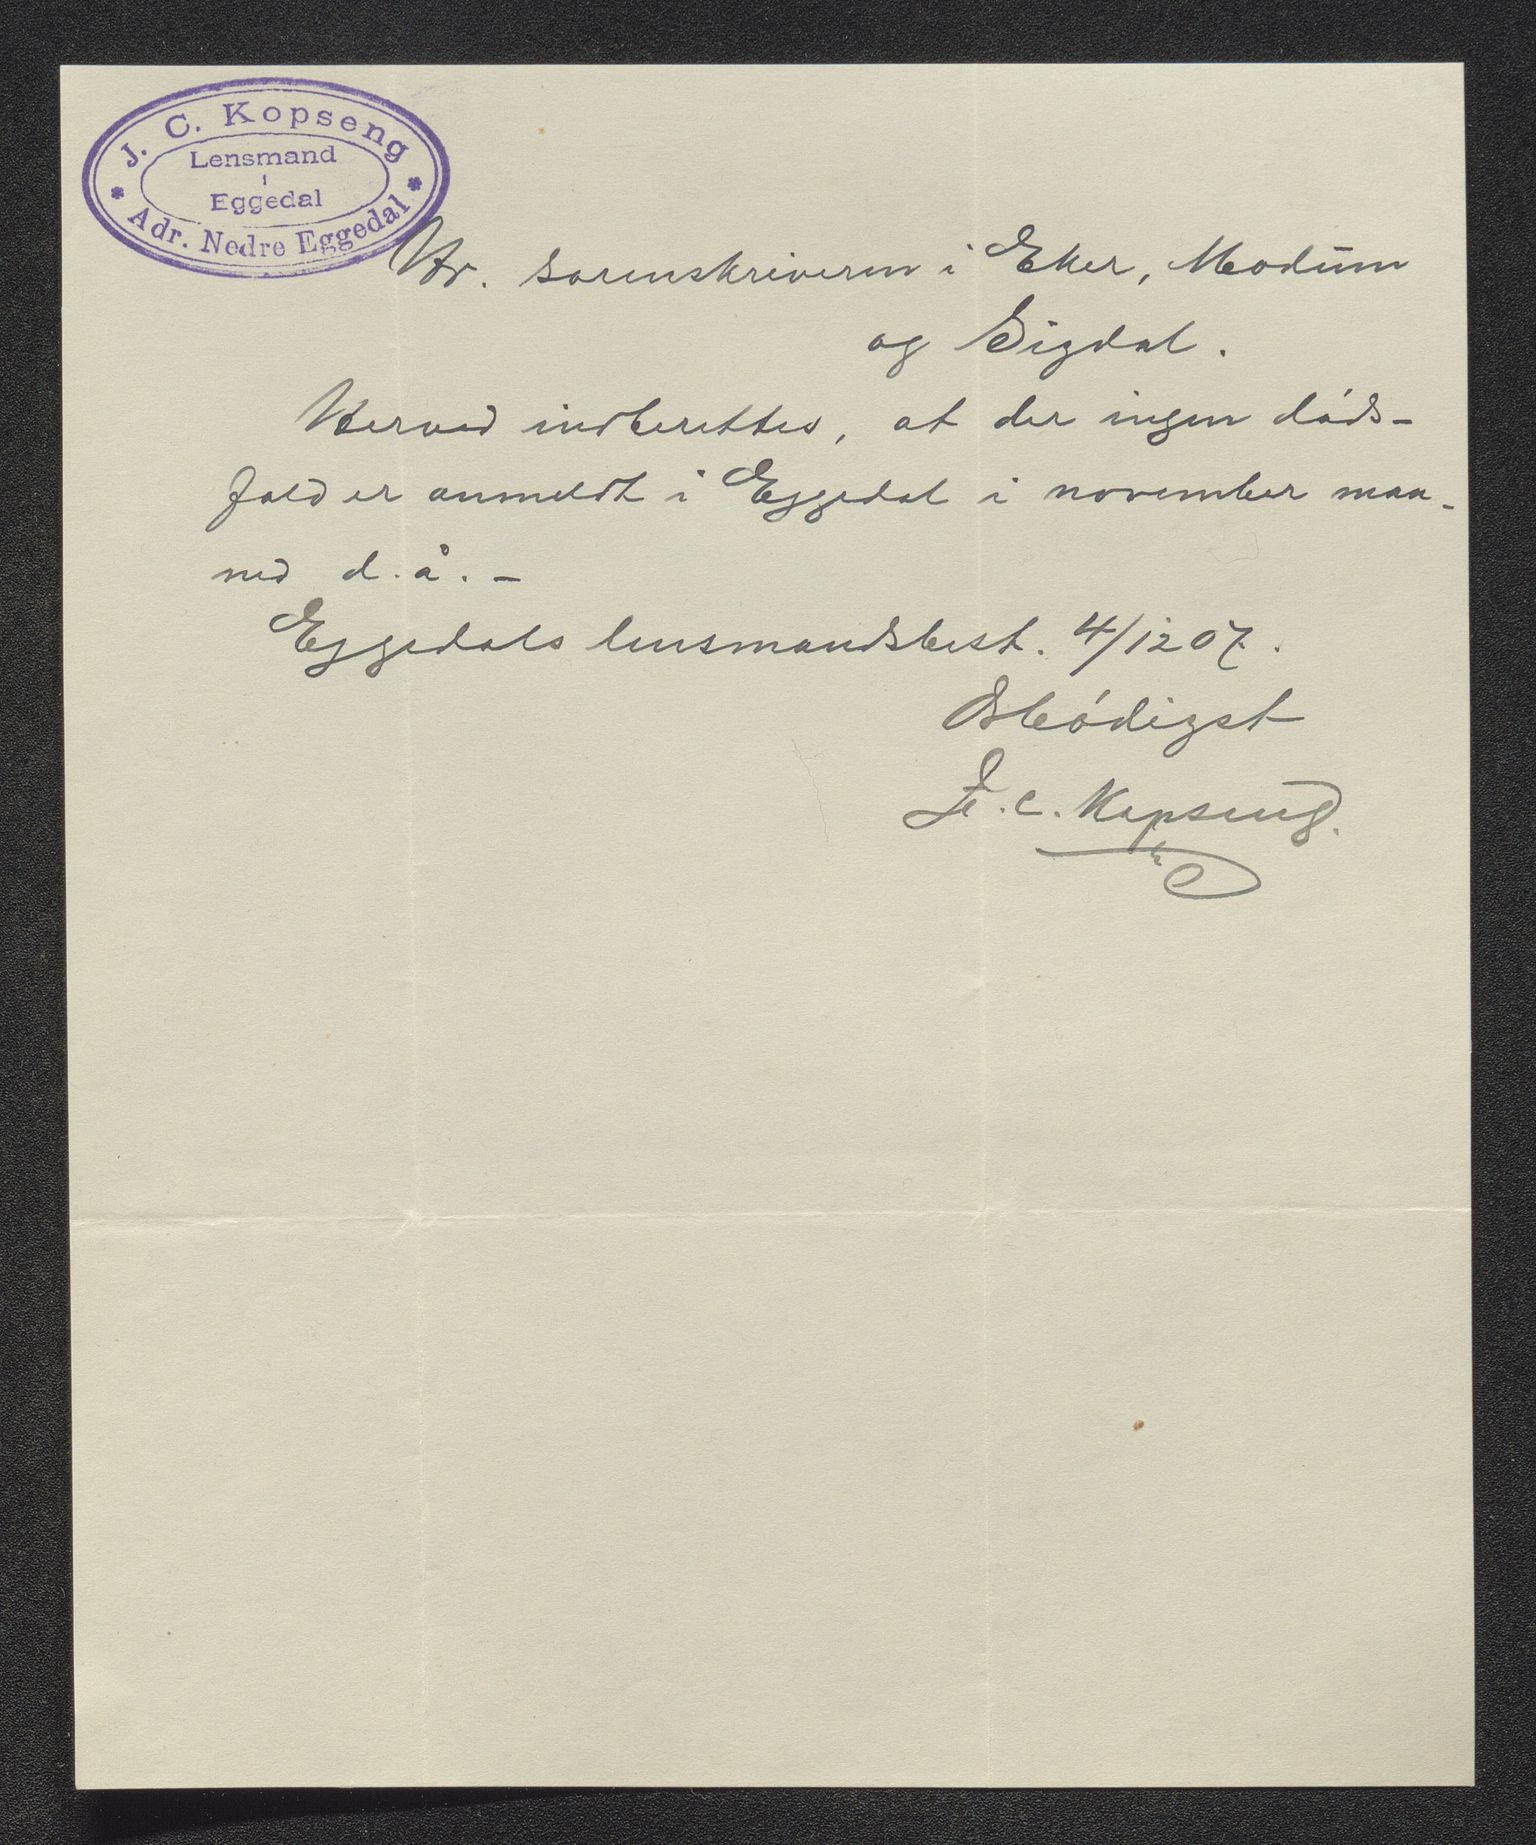 J. C. Kopseng
Lensmand
i
Eggedal
* Adr. Nedre Eggedal *
Hr. sorenskriveren i Eker, Modum
og Sigdal.
Herved indberettes, at der ingen døds-
fald er anmeldt i Eggedal i november maa-
ned d. å. -
Eggedals lensmandsbest. 4/12 07.
Ærbødigst
J. C. Kopseng.